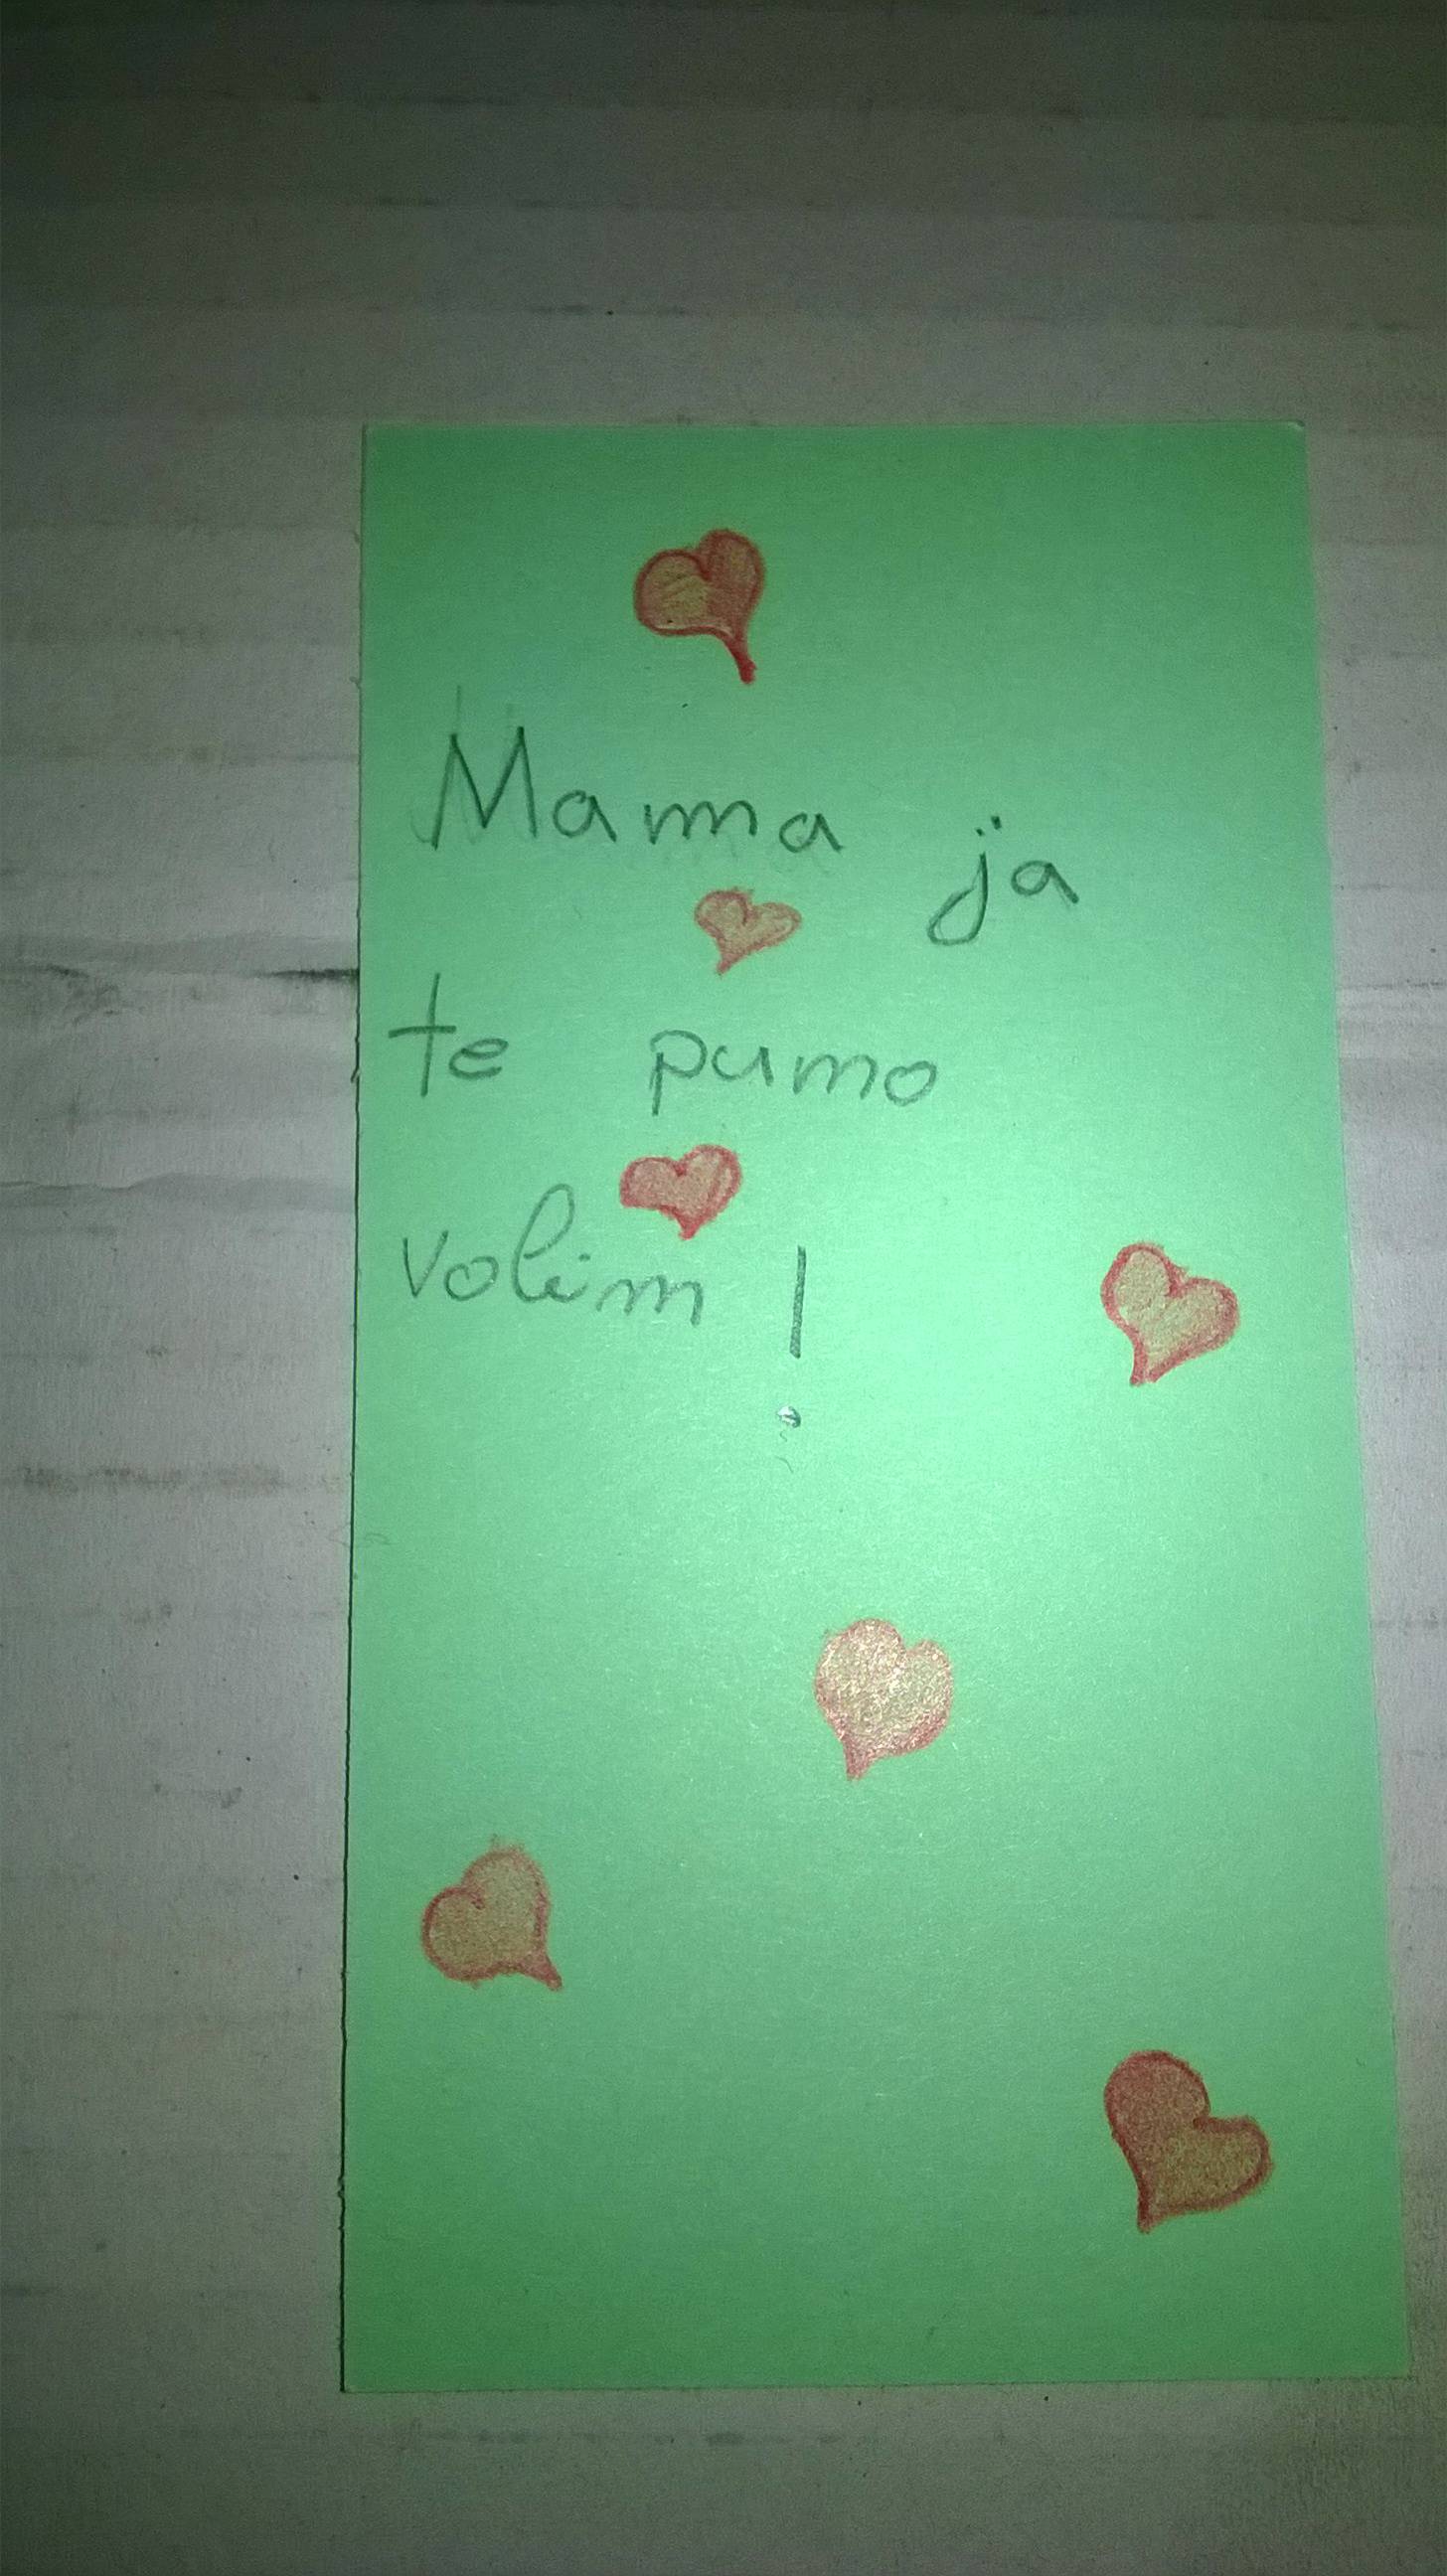 Mama ja
te pumo
volim !